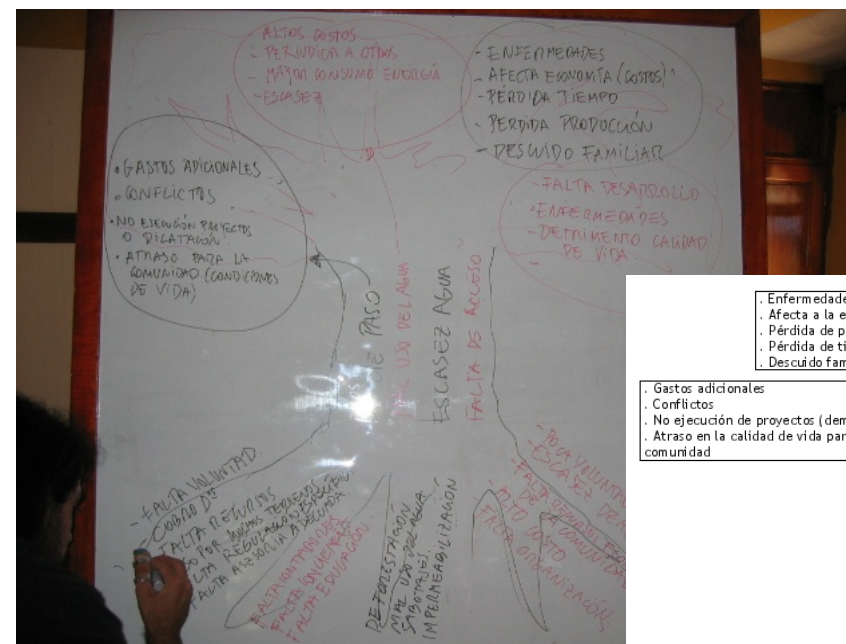 ALTOS COSTOS
- PERJUDICA A OTROS
- MAYOR CONSUMO ENERGÍA
- ESCASEZ
- ENFERMEDADES
- AFECTA ECONOMÍA (COSTOS)
- PÉRDIDA TIEMPO
- PERDIDA PRODUCCIÓN
- DESCUIDO FAMILIAR
• GASTOS ADICIONALES
• CONFLICTOS
• NO EJECUCIÓN PROYECTOS
O DILATACIÓN
• ATRASO PARA LA
COMUNIDAD (CONDICIONES
DE VIDA)
- FALTA DESARROLLO
- ENFERMEDADES
- DETRIMENTO CALIDAD
DE VIDA
DE PASO
MAL USO DEL AGUA
ESCASEZ AGUA
FALTA DE ACCESO
- FALTA VOLUNTAD
- COBRO
FALTA RECURSOS
POR MUCHOS TERRENOS
FALTA REGULACIÓN
FALTA ASESORIA ADECUADA
FALTA CONTADORES
FALTA CONCIENCIA
FALTA EDUCACIÓN
DEFORESTACIÓN
MAL USO DEL AGUA
SABOTAJES
IMPERMEABILIZACIÓN
- POCA
- ESCASEZ DE
- FALTA RECURSOS
DE LA COMUNIDAD
- ALTO COSTO
FALTA ORGANIZACIÓN
. Enfermedade
. Afecta a la e
. Pérdida de p
. Pérdida de ti
. Descuido fam
. Gastos adicionales
. Conflictos
. No ejecución de proyectos (dem
. Atraso en la calidad de vida par
comunidad